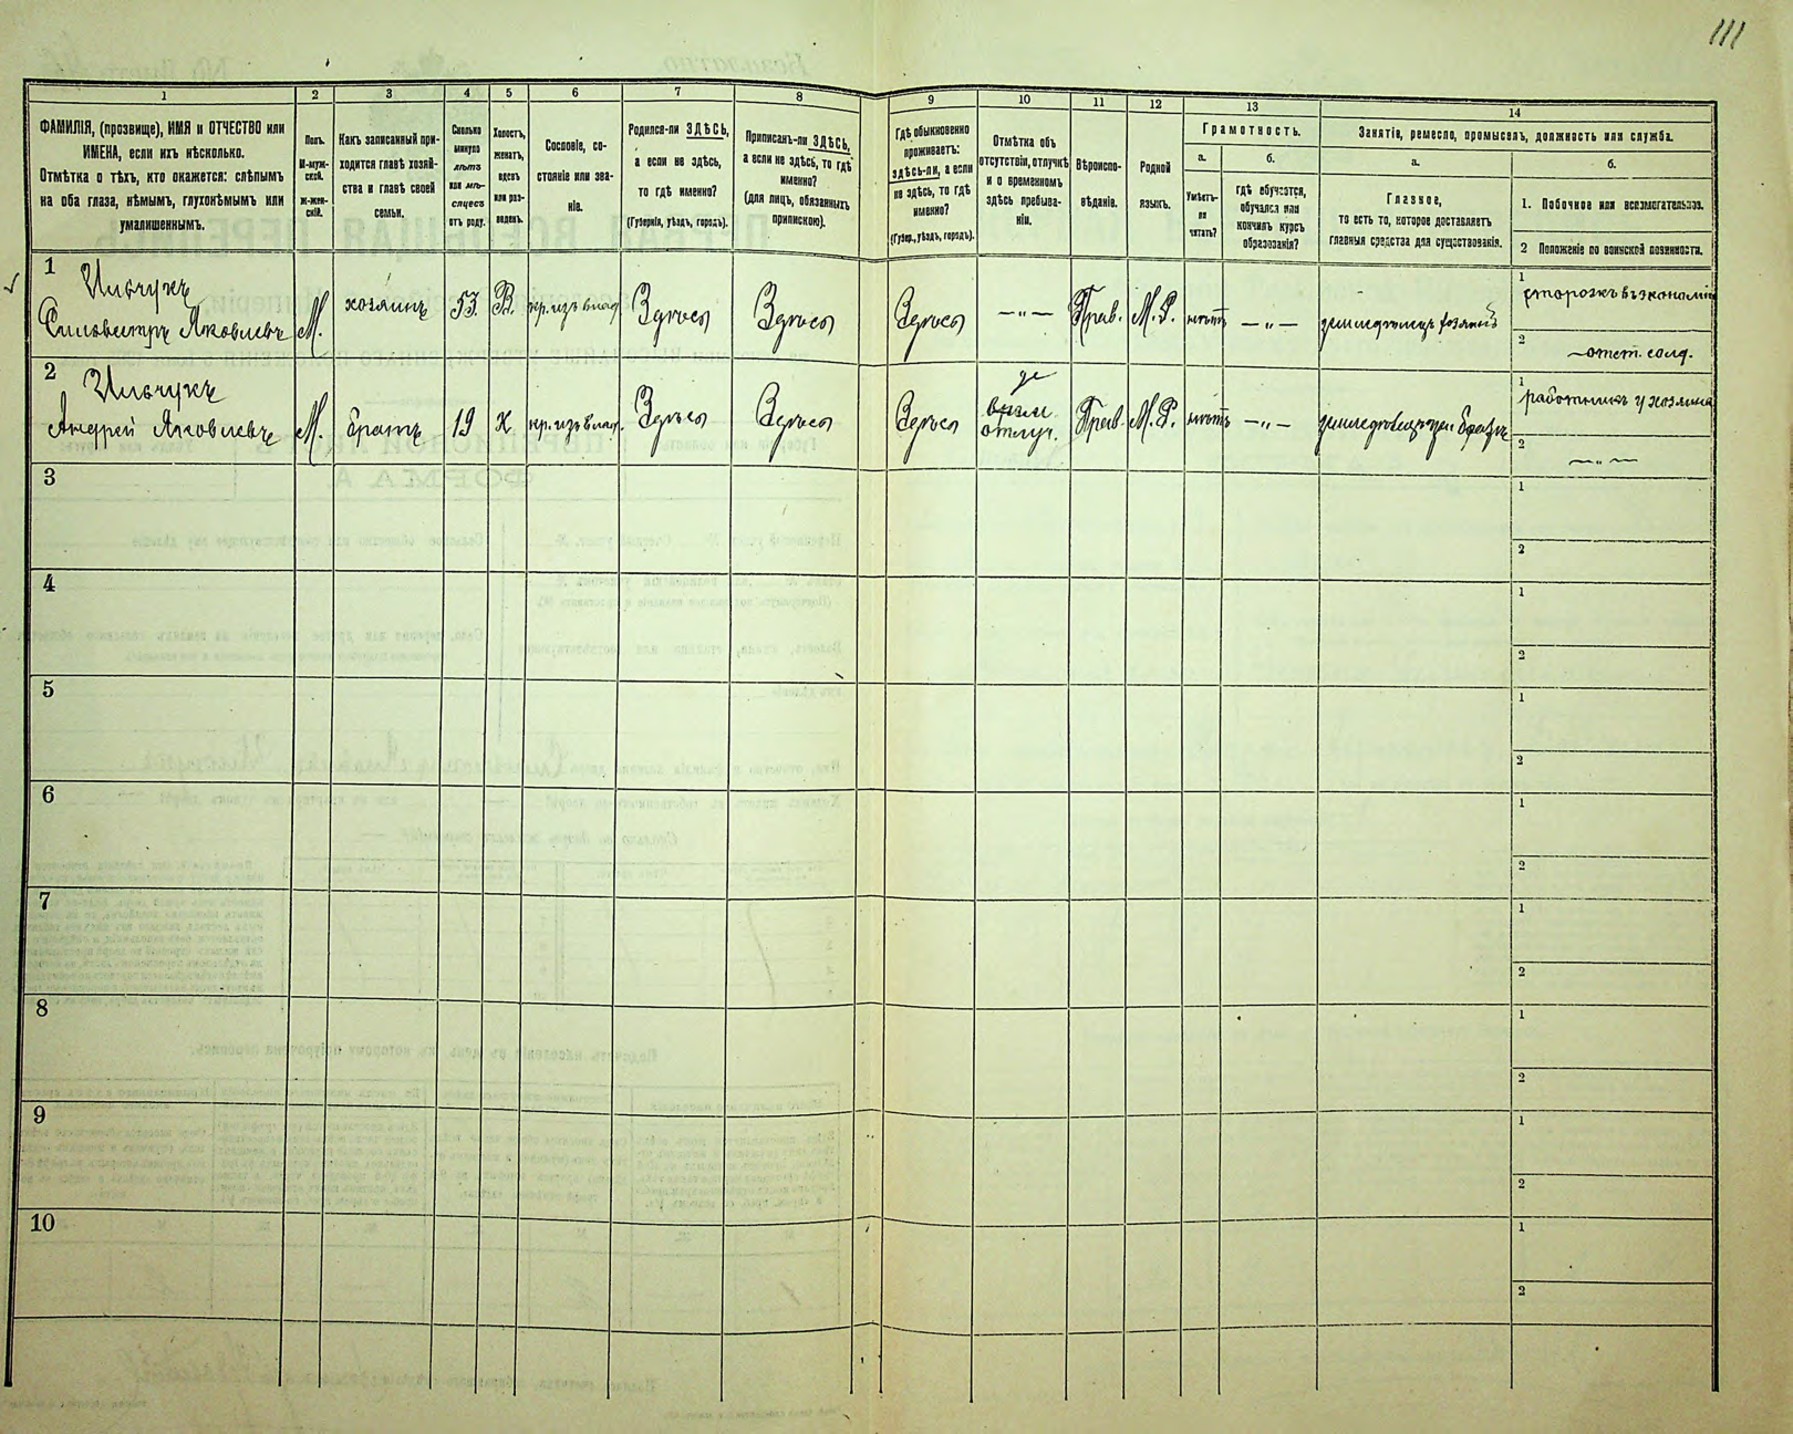 111
1 2 3 4 5 6 7 8 9 10 11 12 13 14
ФАМИЛІЯ, (прозвище), ИМЯ и ОТЧЕСТВО или
ИМЕНА, если ихъ нѣсколько.
Отмѣтка о тѣхъ, кто окажется: слѣпымъ
на оба глаза, нѣмымъ, глухонѣмымъ или
умалишеннымъ.
Полъ.
М-муж-
ской.
ж-жен-
скій.
Какъ записанный при-
ходится главѣ хозяй-
ства и главѣ своей
семьи.
Сколько
минуло
лѣтъ
или мѣ-
сяцевъ
отъ роду.
Холостъ,
женатъ,
вдовъ
или раз-
веденъ.
Сословіе, со-
стояніе или зва-
ніе.
Родился-ли ЗДѢСЬ,
а если не здѣсь,
то гдѣ именно?
(Губернія, уѣздъ, городъ).
Приписанъ-ли ЗДѢСЬ,
а если не здѣсь, то гдѣ
именно?
(для лицъ, обязанныхъ
припискою).
Гдѣ обыкновенно
проживаетъ:
здѣсь-ли, а если
не здѣсь, то гдѣ
именно?
(Губер., уѣздъ, городъ).
Отмѣтка объ
отсутствіи, отлучкѣ
и о временномъ
здѣсь пребыва-
ніи.
Вѣроиспо-
вѣданіе.
Родной
языкъ.
Грамотность.
а.
Умѣетъ-
ли
читать?
б.
гдѣ обучается,
обучался или
кончилъ курсъ
образованія?
Занятіе, ремесло, промыселъ, должность или служба.
а.
Главное,
то есть то, которое доставляетъ
главныя средства для существованія.
б.
1. Побочное или вспомогательное.
2 Положеніе по воинской повинности.
1
Ильчукъ
Сильвестръ Яковлевъ
М.
хозяинъ
53.
В.
кр. изъ влад.
Здѣсь
Здѣсь
Здѣсь
— „ —
Прав.
М. Р.
нѣтъ
— „ —
1
сторожъ въ экономіи
2
—отст. солд.
2
Ильчукъ
Андрей Яковлевъ
М.
братъ
19
Х
кр. изъ влад.
Здѣсь
Здѣсь
Здѣсь
отлуч.
Прав.
М. Р.
нѣтъ
— „ —
1
работникъ у хозяина
2
— „ —
3
1
2
4
1
2
5
1
2
6
1
2
7
1
2
8
1
2
9
1
2
10
1
2